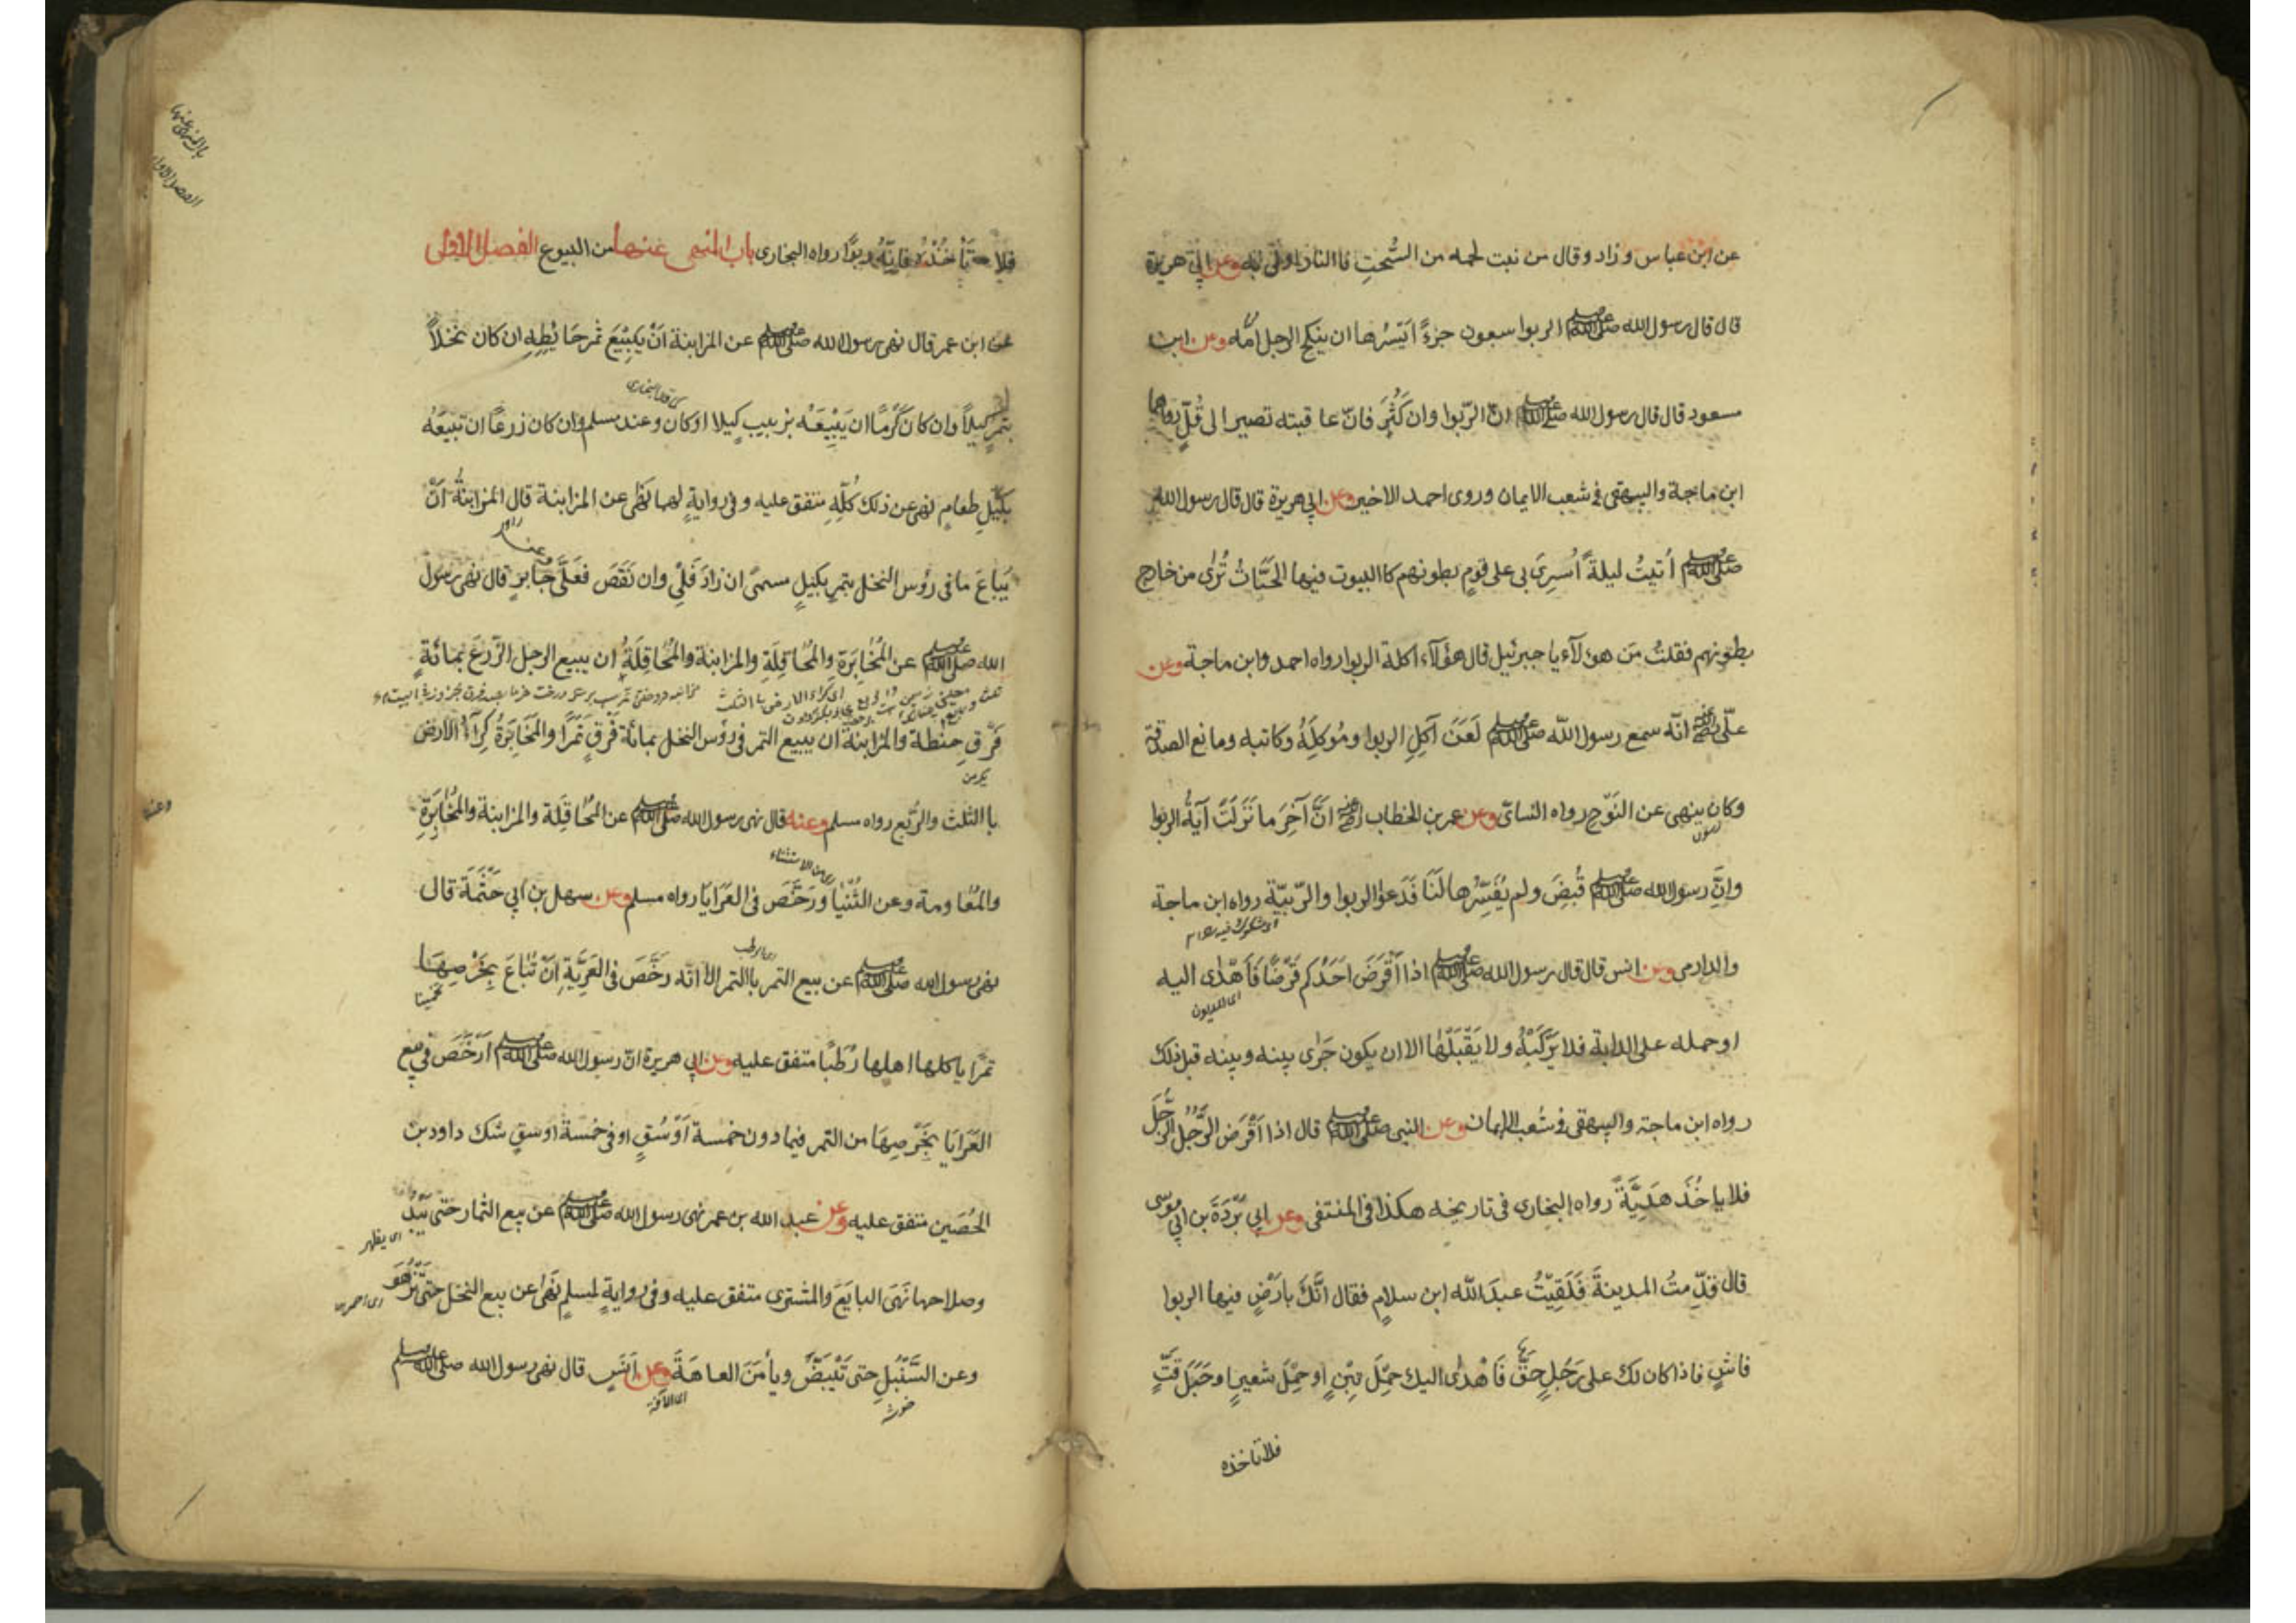 عن ابن عباس وزاد وقال من نبت لحمه من السُّحتِ فاالنار اولٰى به وعن ابي هريرة
قال قال رسول الله صلى الله عليه وسلم الربوا سبعون جزءً اَيَسْرُها ان ينكح الرجل اُمَّه وعن ابن
مسعود قال قال رسول الله صلى الله عليه وسلم انّ الرّبوا وان كَثُرَ فانّ عاقبته تصير الى قُلٍّ رواهما
ابن ماجة والبيهقى فى شعب الايمان وروى احمد الاخير وعن ابي هريرة قال قال رسول الله
صلى الله عليه وسلم اُتيتُ ليلةً اُسرِىَ بى على قومٍ بطونهم كاالبيوت فيها الحيّاتُ تُرٰى من خارج
بطونهم فقلتُ مَن هولآء يا جبرئيل قال هؤلآء اكلة الربوا رواه احمد وابن ماجة وعن
علّى رضي الله عنه انّه سمع رسول الله صلى الله عليه وسلم لَعَنَ آكِلِ الربوا ومُوكِلَهُ وكاتبه ومانع الصدقة
وكان ينهى عن النَوّحِ رواه النسائى وعن عمر بن الخطاب رضي الله عنه انَّ آخِرَ ما نَزَلَتْ آيةُ الربوا
وانّ رسول الله صلى الله عليه وسلم قُبِضَ ولم يُفَسِّرْها لَنَا فَدَعوا الربوا والرّيبَة رواه ابن ماجة
اى شكوك فيه
والدارمى وعن انس قال قال رسول الله صلى الله عليه وسلم اذا اَقْرَضَ اَحَدُكم قَرْضًا فَاَهْدٰى اليه
اى المديون
او حمله على الدابة فلا يَرْكَبْهُ ولا يَقْبَلْهَا الا ان يكون جَرٰى بينه وبينه قبل ذلك
رواه ابن ماجة والبيهقى فى شُعب الايمان وعن النبى صلى الله عليه وسلم قال اذا اَقْرَضَ الرَّجُلُ الرَّجُلَ
فلا ياخُذَ هَدِيَّةً رواه البخارى فى تاريخه هكذا فى المنتقى وعن ابي بُرْدَةَ بن ابى موسٰى
قال قَدِّمتُ المدينةَ فَلَقِيْتُ عبدَ الله ابن سلامٍ فقال انَّكَ بارْضٍ فيها الربوا
فاشٍ فاذا كان لك على رَجُلٍ حَقٌّ فَاَهْدٰى اليك حِمْلَ تِبْنٍ او حِمْلَ شعيرٍ او حَبْلَ قَتٍّ
فلا تاخذه
باب المنهى عنها
الفصل الاول
فلا تَأْخُذْهُ فانّهُ ربوًا رواه البخارى باب المنهى عنها من البيوع الفصل الاوّل
عن ابن عمر قال نهى رسول الله صلى الله عليه وسلم عن المزابنة اَنْ يَبِيْعَ ثمرَ حَائِطِهِ ان كان نخلاً
بتمرٍ كيلاً وان كان كَرْمًا ان يَبِيْعَهُ بزبيبٍ كيلا او كان وعند مسلم وان كان زرعًا ان تبيعَهُ
بكَيْلِ طعامٍ نهى عن ذلك كُلِّهِ متفق عليه وفى روايةٍ لهما نَهٰى عن المزابنة قال المزابنةُ اَنْ
يُبَاعَ ما فى رؤس النخل بتمرٍ بكيلٍ مسمىً ان زادَ فَلِى وان نَقَصَ فَعَلَىَّ وعن جابرٍ قال نهى رسول
الله صلى الله عليه وسلم عن المُخابَرَةِ والمُحَاقِلَةِ والمزابنة والمُحاقِلَةُ ان يبيع الرجل الزّرعَ بمائةِ
فَرْقِ حنطة والمزابنة ان يبيع التمر فى رؤس النخل بمائةِ فَرْقٍ تَمرًا والمخَابَرَةُ كِرآءُ الارض
باالثلث والرّبع رواه مسلم وعنه قال نهى رسول الله صلى الله عليه وسلم عن المُحَاقِلَة والمزابنة والمخابَرَةِ
من الاستثناء
والمُعاومة وعن الثُنْيَا ورَخَّصَ فى العَرَايَا رواه مسلم وعن سهل بن ابي حَثْمَةَ قال
اى الرطب
نهى رسول الله صلى الله عليه وسلم عن بيع التمر باالتمر الا انّه رَخَّصَ فى العَرِيَّةِ اَنْ تُباعَ بِخَرْصِهَا
تخمينا
تمرًا ياكلها اهلها رُطَبًا متفق عليه وعن ابي هريرة انّ رسول الله صلى الله عليه وسلم اَرْخَصَ فى بيع
العَرَايَا بِخَرْصِهَا من التمر فيما دون خمسة اَوْسُقٍ او فى خمسة اوسقٍ شك داود بن
الحُصَين متفق عليه وعن عبد الله بن عمر نهى رسول الله صلى الله عليه وسلم عن بيع الثمار حتى يَبْدُ
اى يظهر
وصلاحها نَهَى البايَعَ والمشترى متفق عليه وفى روايةٍ لمسلم نَهٰى عن بيع النخل حتّى تَزْهُوَ
وعن السَّنْبُلِ حتى تَبْيَضَّ ويأمَنَ العاهَةَ وعن اَنَسٍ قال نهى رسول الله صلى الله عليه وسلم
خوشه
اى الآفة